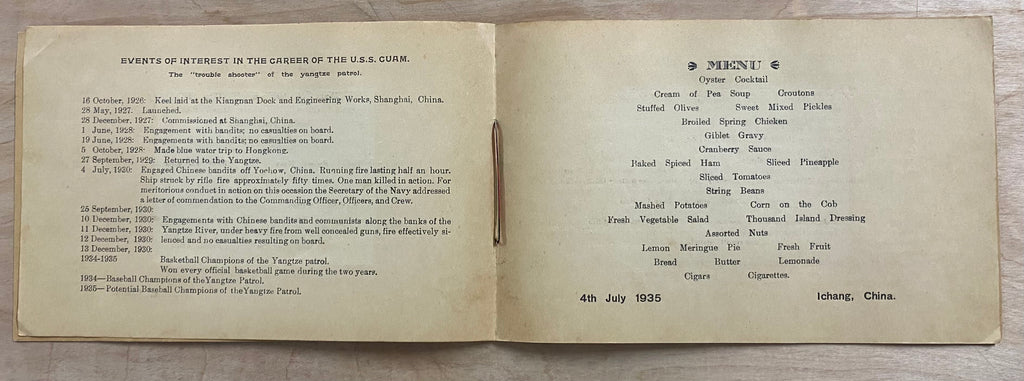 EVENTS OF INTEREST IN THE CAREER OF THE U.S.S. GUAM.
The "trouble shooter" of the yangtze patrol.
16 October, 1926: Keel laid at the Kiangnan Dock and Engineering Works, Shanghai, China.
28 May, 1927: Launched.
28 December, 1927: Commissioned at Shanghai, China.
1 June, 1928: Engagement with bandits; no casualties on board.
19 June, 1928: Engagements with bandits; no casualties on board.
5 October, 1928: Made blue water trip to Hongkong.
27 September, 1929: Returned to the Yangtze.
4 July, 1930: Engaged Chinese bandits off Yochow, China. Running fire lasting half an hour.
Ship struck by rifle fire approximately fifty times. One man killed in action. For
meritorious conduct in action on this occasion the Secretary of the Navy addressed
a letter of commendation to the Commanding Officer, Officers, and Crew.
25 September, 1930:
10 December, 1930: Engagements with Chinese bandits and communists along the banks of the
11 December, 1930: Yangtze River, under heavy fire from well concealed guns, fire effectively si-
12 December, 1930: lenced and no casualties resulting on board.
13 December, 1930:
1934-1935 Basketball Champions of the Yangtze patrol.
Won every official basketball game during the two years.
1934—Baseball Champions of the Yangtze Patrol.
1935—Potential Baseball Champions of the Yangtze Patrol.
MENU
Oyster Cocktail
Cream of Pea Soup Croutons
Stuffed Olives Sweet Mixed Pickles
Broiled Spring Chicken
Giblet Gravy
Cranberry Sauce
Baked Spiced Ham Sliced Pineapple
Sliced Tomatoes
String Beans
Mashed Potatoes Corn on the Cob
Fresh Vegetable Salad Thousand Island Dressing
Assorted Nuts
Lemon Meringue Pie Fresh Fruit
Bread Butter Lemonade
Cigars Cigarettes.
4th July 1935 Ichang, China.